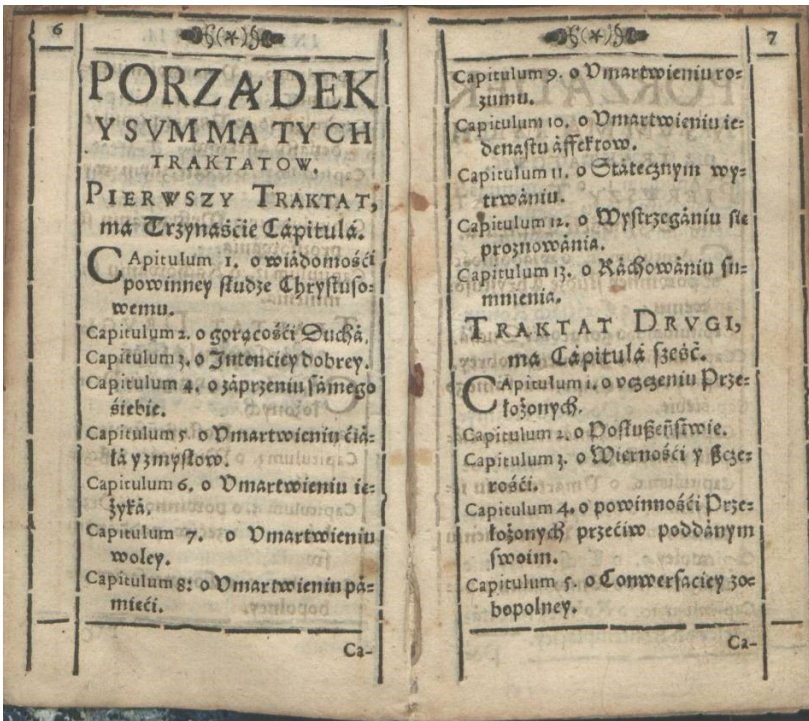 6
PORZĄDEK
Y SVMMA TYCH
TRAKTATOW.
PIERWSZY TRAKTAT,
ma Trzynaśćie Cápitulá.
CApitulum 1. o wiádomośći
powinney słudze Chrystuso-
wemu.
Capitulum 2. o gorącośći Duchá.
Capitulum 3. o Intenciey dobrey.
Capitulum 4. o záprzeniu sámego
śiebie.
Capitulum 5. o Vmartwieniu ćiá-
łá y zmysłow.
Capitulum 6. o Vmartwieniu ię-
zyká.
Capitulum 7. o Vmartwieniu
woley.
Capitulum 8: o Vmartwieniu pá-
mięći.
Ca-
7
Capitulum 9. o Vmartwieniu ro-
zumu.
Capitulum 10. o Vmartwieniu ie-
denastu áffektow.
Capitulum 11. o Státecznym wy-
trwániu.
Capitulum 12. o Wystrzegániu się
proznowánia.
Capitulum 13. o Ráchowániu su-
mnienia.
TRAKTAT DRVGI,
ma Cápitulá sześć.
CApitulum 1. o vczczeniu Prze-
łożonych.
Capitulum 2. o Posłußeństwie.
Capitulum 3. o Wiernośći y ßcze-
rośći.
Capitulum 4. o powinnośći Prze-
łożonych przećiw poddánym
swoim.
Capitulum 5. o Conwersaciey zo-
bopolney.
Ca-